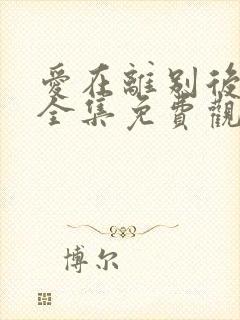 愛在離别後
全集免費觀
博尔